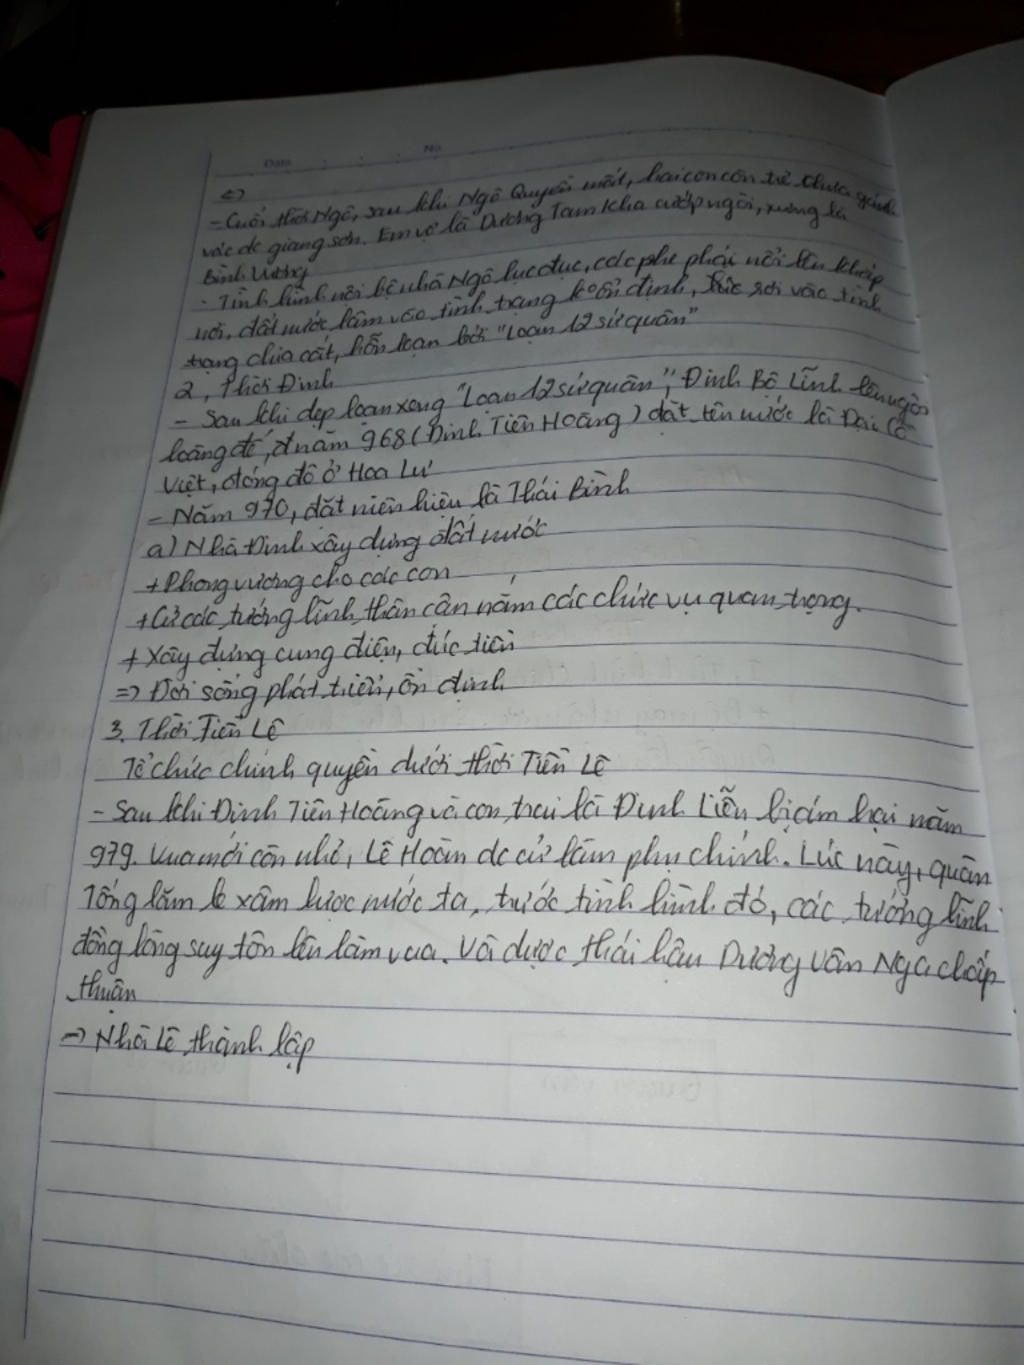 Date No
c)
- Cuối thời Ngô, sau khi Ngô Quyền mất, hai con còn trẻ chưa gánh
vác đc giang sơn. Em vợ là Dương Tam Kha cướp ngôi, xưng là
Bình Vương
- Tình hình nội bộ nhà Ngô lục đục, các phe phái nổi lên khắp
nơi, đất nước lâm vào tình trạng k ổn định, rơi vào tình
trạng chia cắt, hỗn loạn bởi "Loạn 12 sứ quân"
2, Thời Đinh
- Sau khi dẹp loạn xong "Loạn 12 sứ quân", Đinh Bộ Lĩnh lên ngôi
hoàng đế, năm 968 (Đinh Tiên Hoàng) đặt tên nước là Đại Cồ
Việt, đóng đô ở Hoa Lư
- Năm 970, đặt niên hiệu là Thái Bình
a) Nhà Đinh xây dựng đất nước
+ Phong vương cho các con
+ Cử các tướng lĩnh thân cận nắm các chức vụ quan trọng.
+ Xây dựng cung điện, đúc tiền
=> Đời sống phát triển, ổn định
3. Thời Tiền Lê
Tổ chức chính quyền dưới thời Tiền Lê
- Sau khi Đinh Tiên Hoàng và con trai là Đinh Liễn bị ám hại năm
979. Vua mới còn nhỏ, Lê Hoàn đc cử làm phụ chính. Lúc này, quân
Tống lăm le xâm lược nước ta, trước tình hình đó, các tướng lĩnh
đồng lòng suy tôn lên làm vua. Và được thái hậu Dương Vân Nga chấp
thuận
-> Nhà Lê thành lập